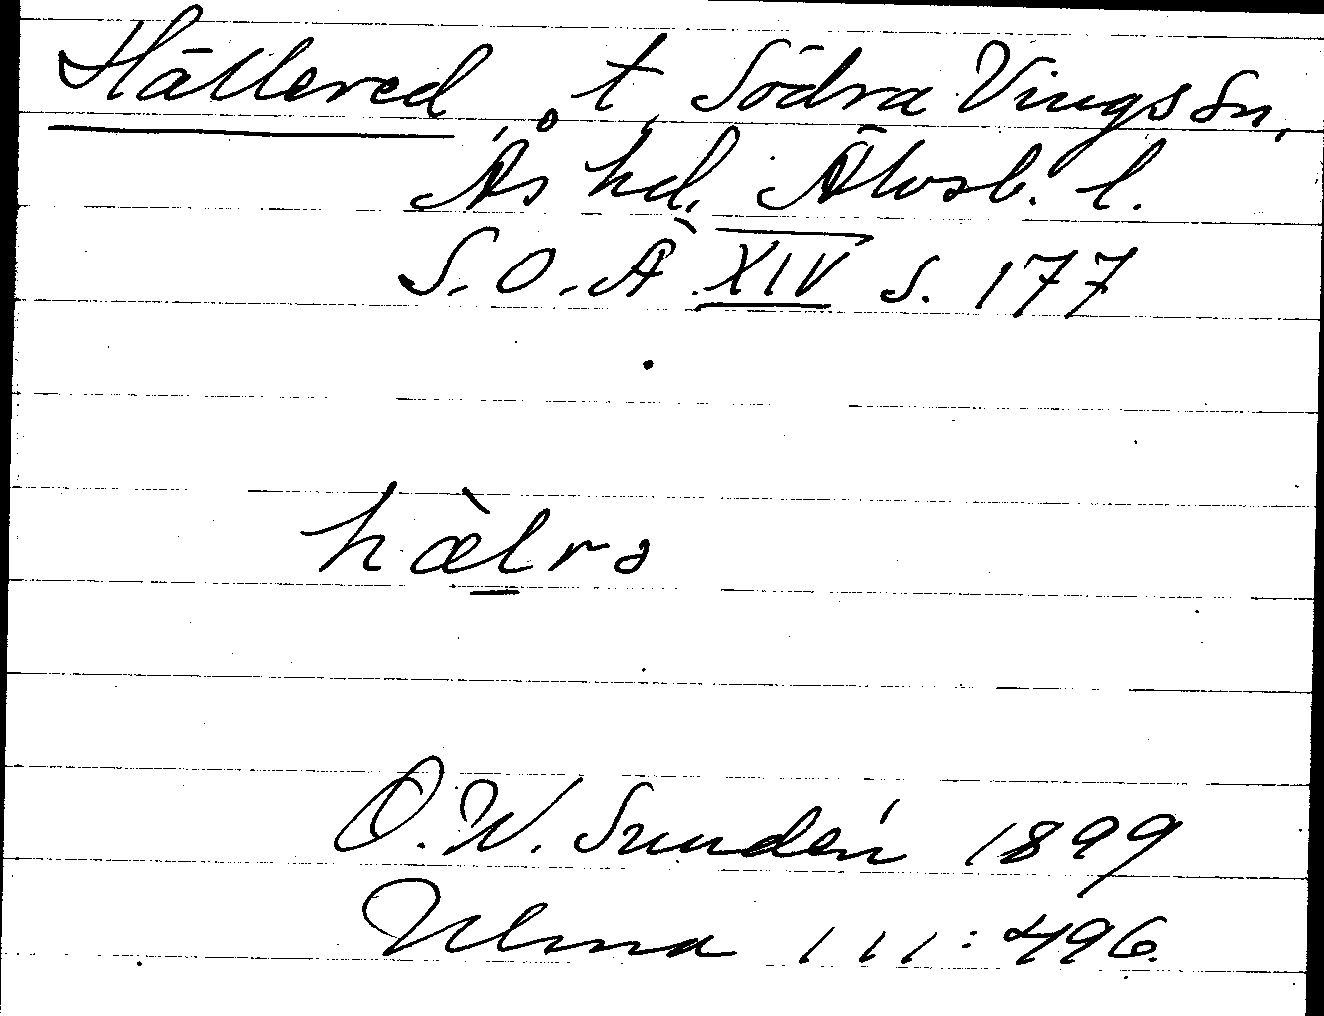 Hällered, t. Södra Vings sn,
Ås hd. Älvsb. l.
S.O.Ä XIV s. 177
hæ̀lrə
O.W. Sundén 1899
Ulma 111:496.